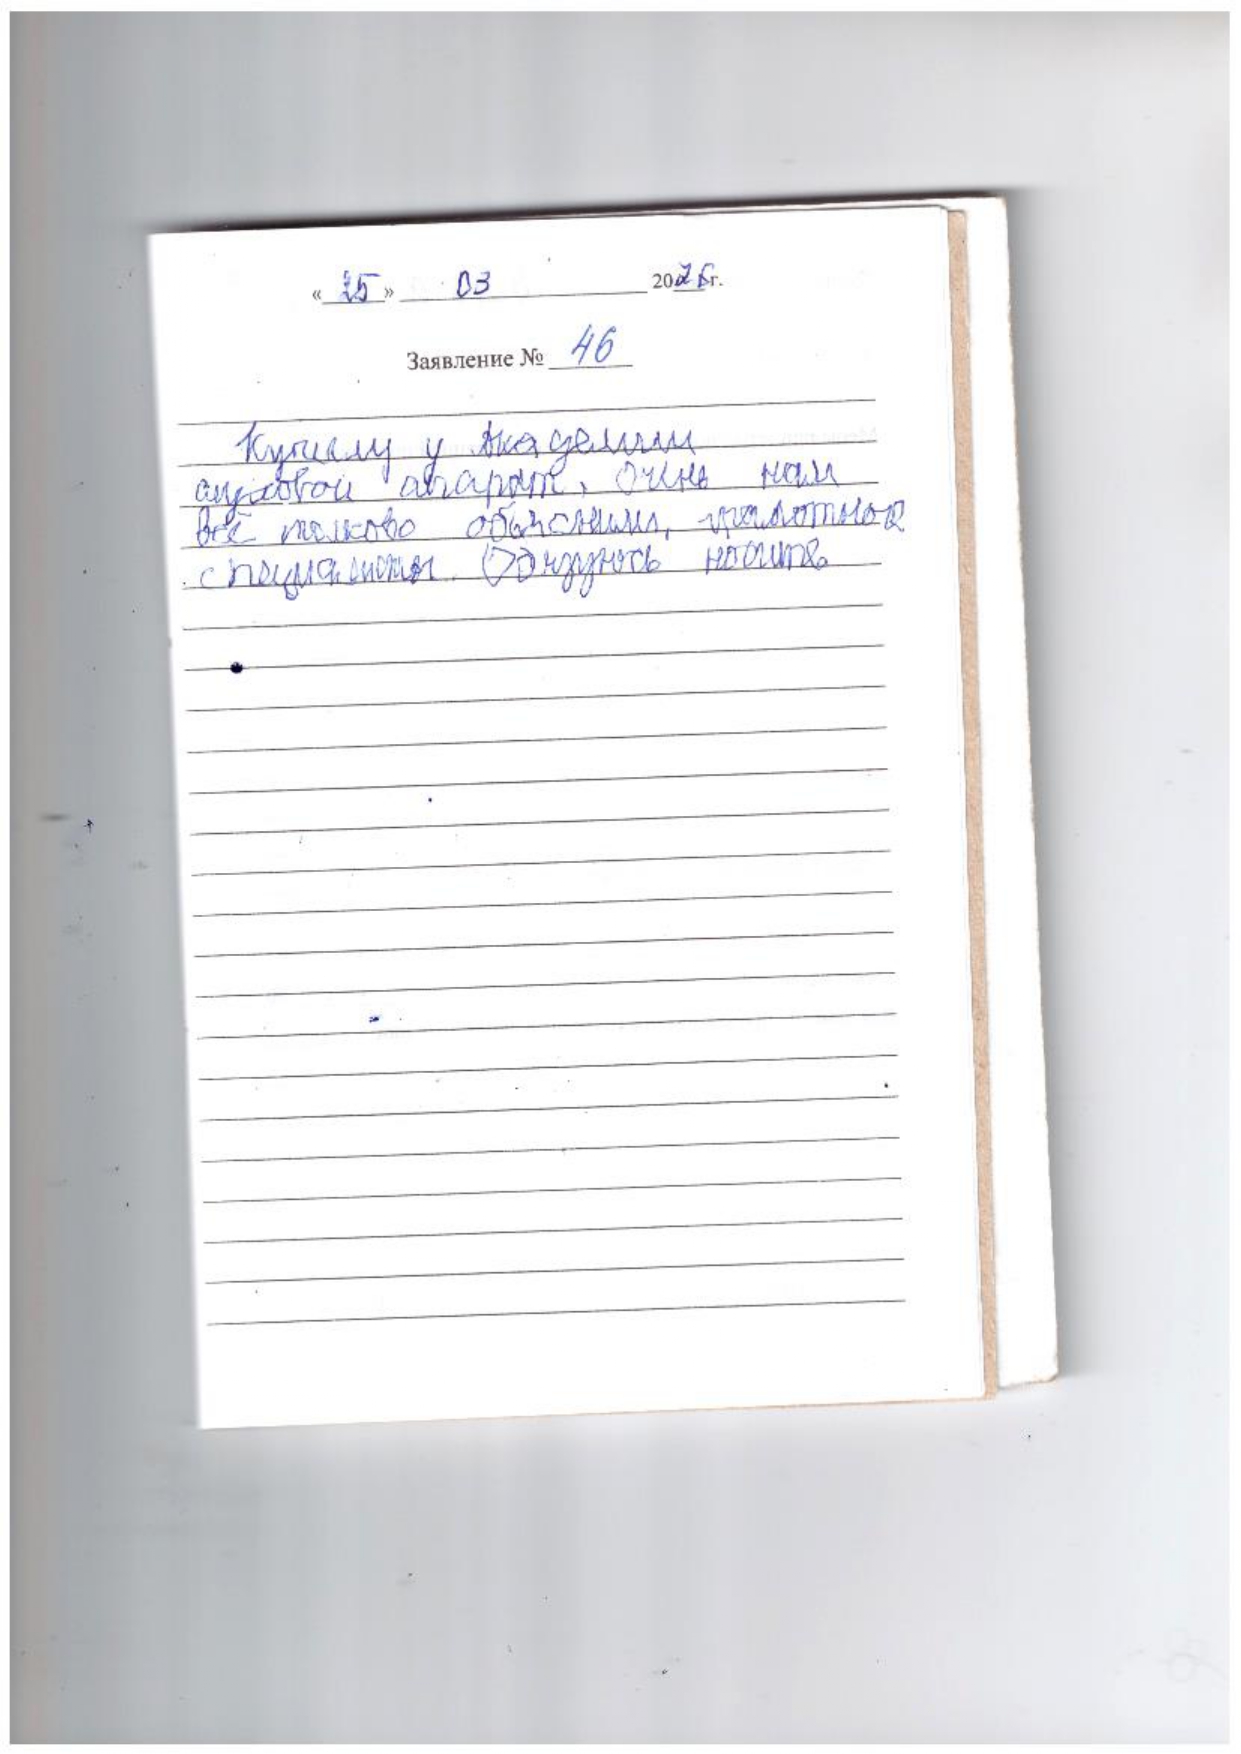 « 25 » 03 2025 г.
Заявление № 46
Купили у Академии
слуховой апарат, очень нам
всё толково объяснили, грамотные
специалисты.